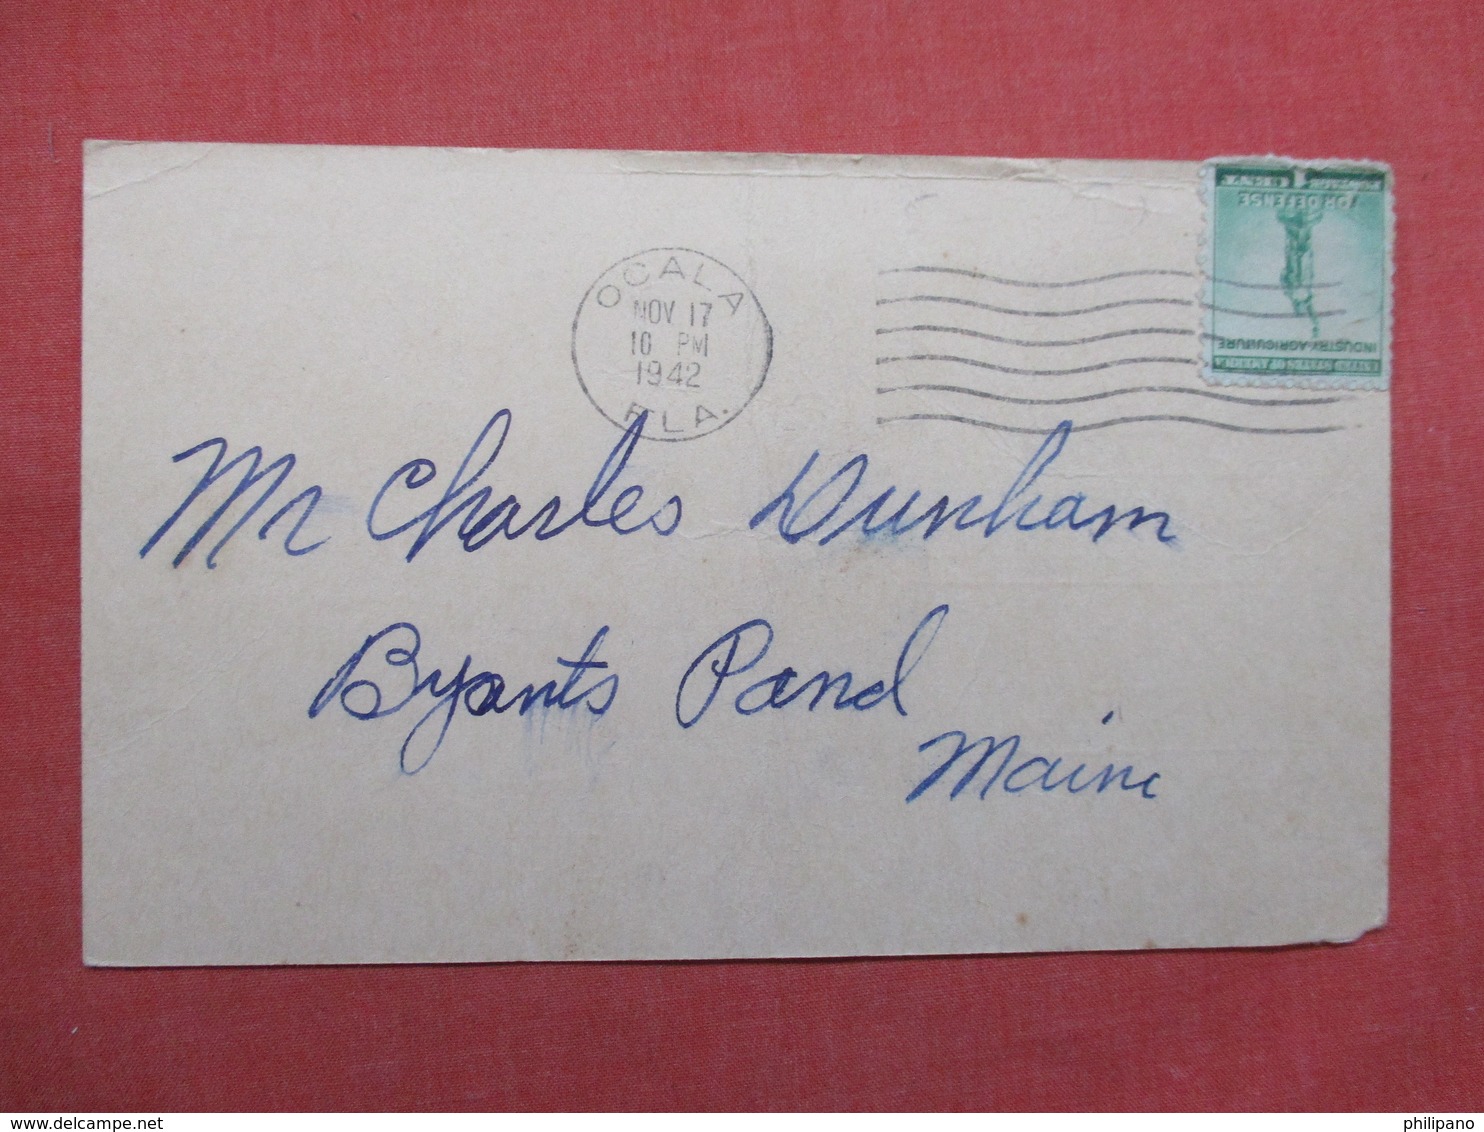 OCALA
NOV 17
10 PM
1942
FLA.
FOR DEFENSE
INDUSTRY-AGRICULTURE
UNITED STATES OF AMERICA
Mr Charles Dunham
Byants Pond
Maine
philipano
delcampe.net